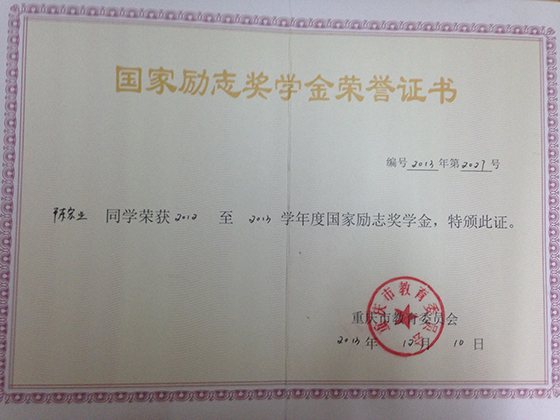 国家励志奖学金荣誉证书
编号2013年第2027号
陈宏业 同学荣获2012 至 2013 学年度国家励志奖学金，特颁此证。
重庆市教育委员会
重庆市教育委员会
2013年 12月 10日